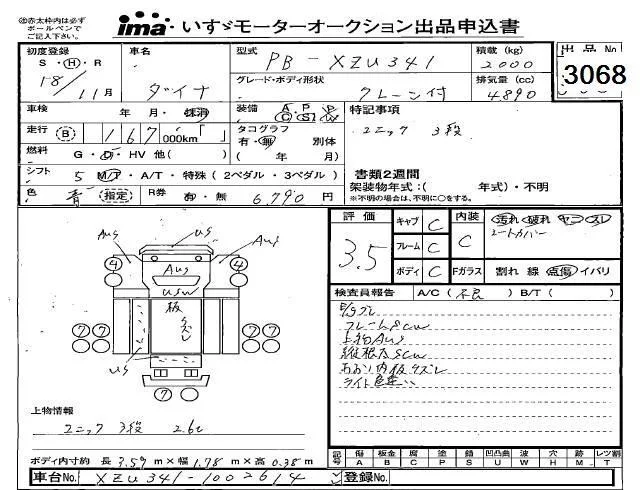 ◎赤太枠内は必ず
ボールペンで
ご記入下さい。
ima いすゞモーターオークション出品申込書
初度登録 S・H・R 18/11月
車名 ダイナ
型式 PB-XZU341
積載(kg) 2000
出品No 3068
グレード・ボディ形状 クレーン付
排気量(cc) 4890
車検 年 月・抹消
装備 A P
特記事項
走行 B 167 000km「 」
タコグラフ 有・無 別体 ( 年 月)
ユニック 3段
燃料 G・D・HV 他( )
シフト 5 M/T・A/T・特殊(2ペダル・3ペダル)
書類2週間
架装物年式:( 年式)・不明
※不明の場合は、不明に○をする。
色 青 指定
R券 有・無 6,790 円
評価 3.5
キャブ C
フレーム C
ボディ C
内装 C 汚れ 破れ ヤニ スレ
シートカバー
Fガラス 割れ 線 点傷 イバリ
Aus us Aus
4 Aus 4
usw
板 タズレ
7 7 7 7
us
7
検査員報告 A/C(不良) B/T( )
フレームScw
上物Aus
縦根太Scw
あおり内板タズレ
ライト
上物情報
ユニック 3段 2.6t
ボディ内寸約 長3.59m×幅1.78m×高0.38m
記号 傷A 板金B 腐C 塗P 錆S 凹凸曲U 波W 穴H M T
車台No. XZU341-1002614
登録No.